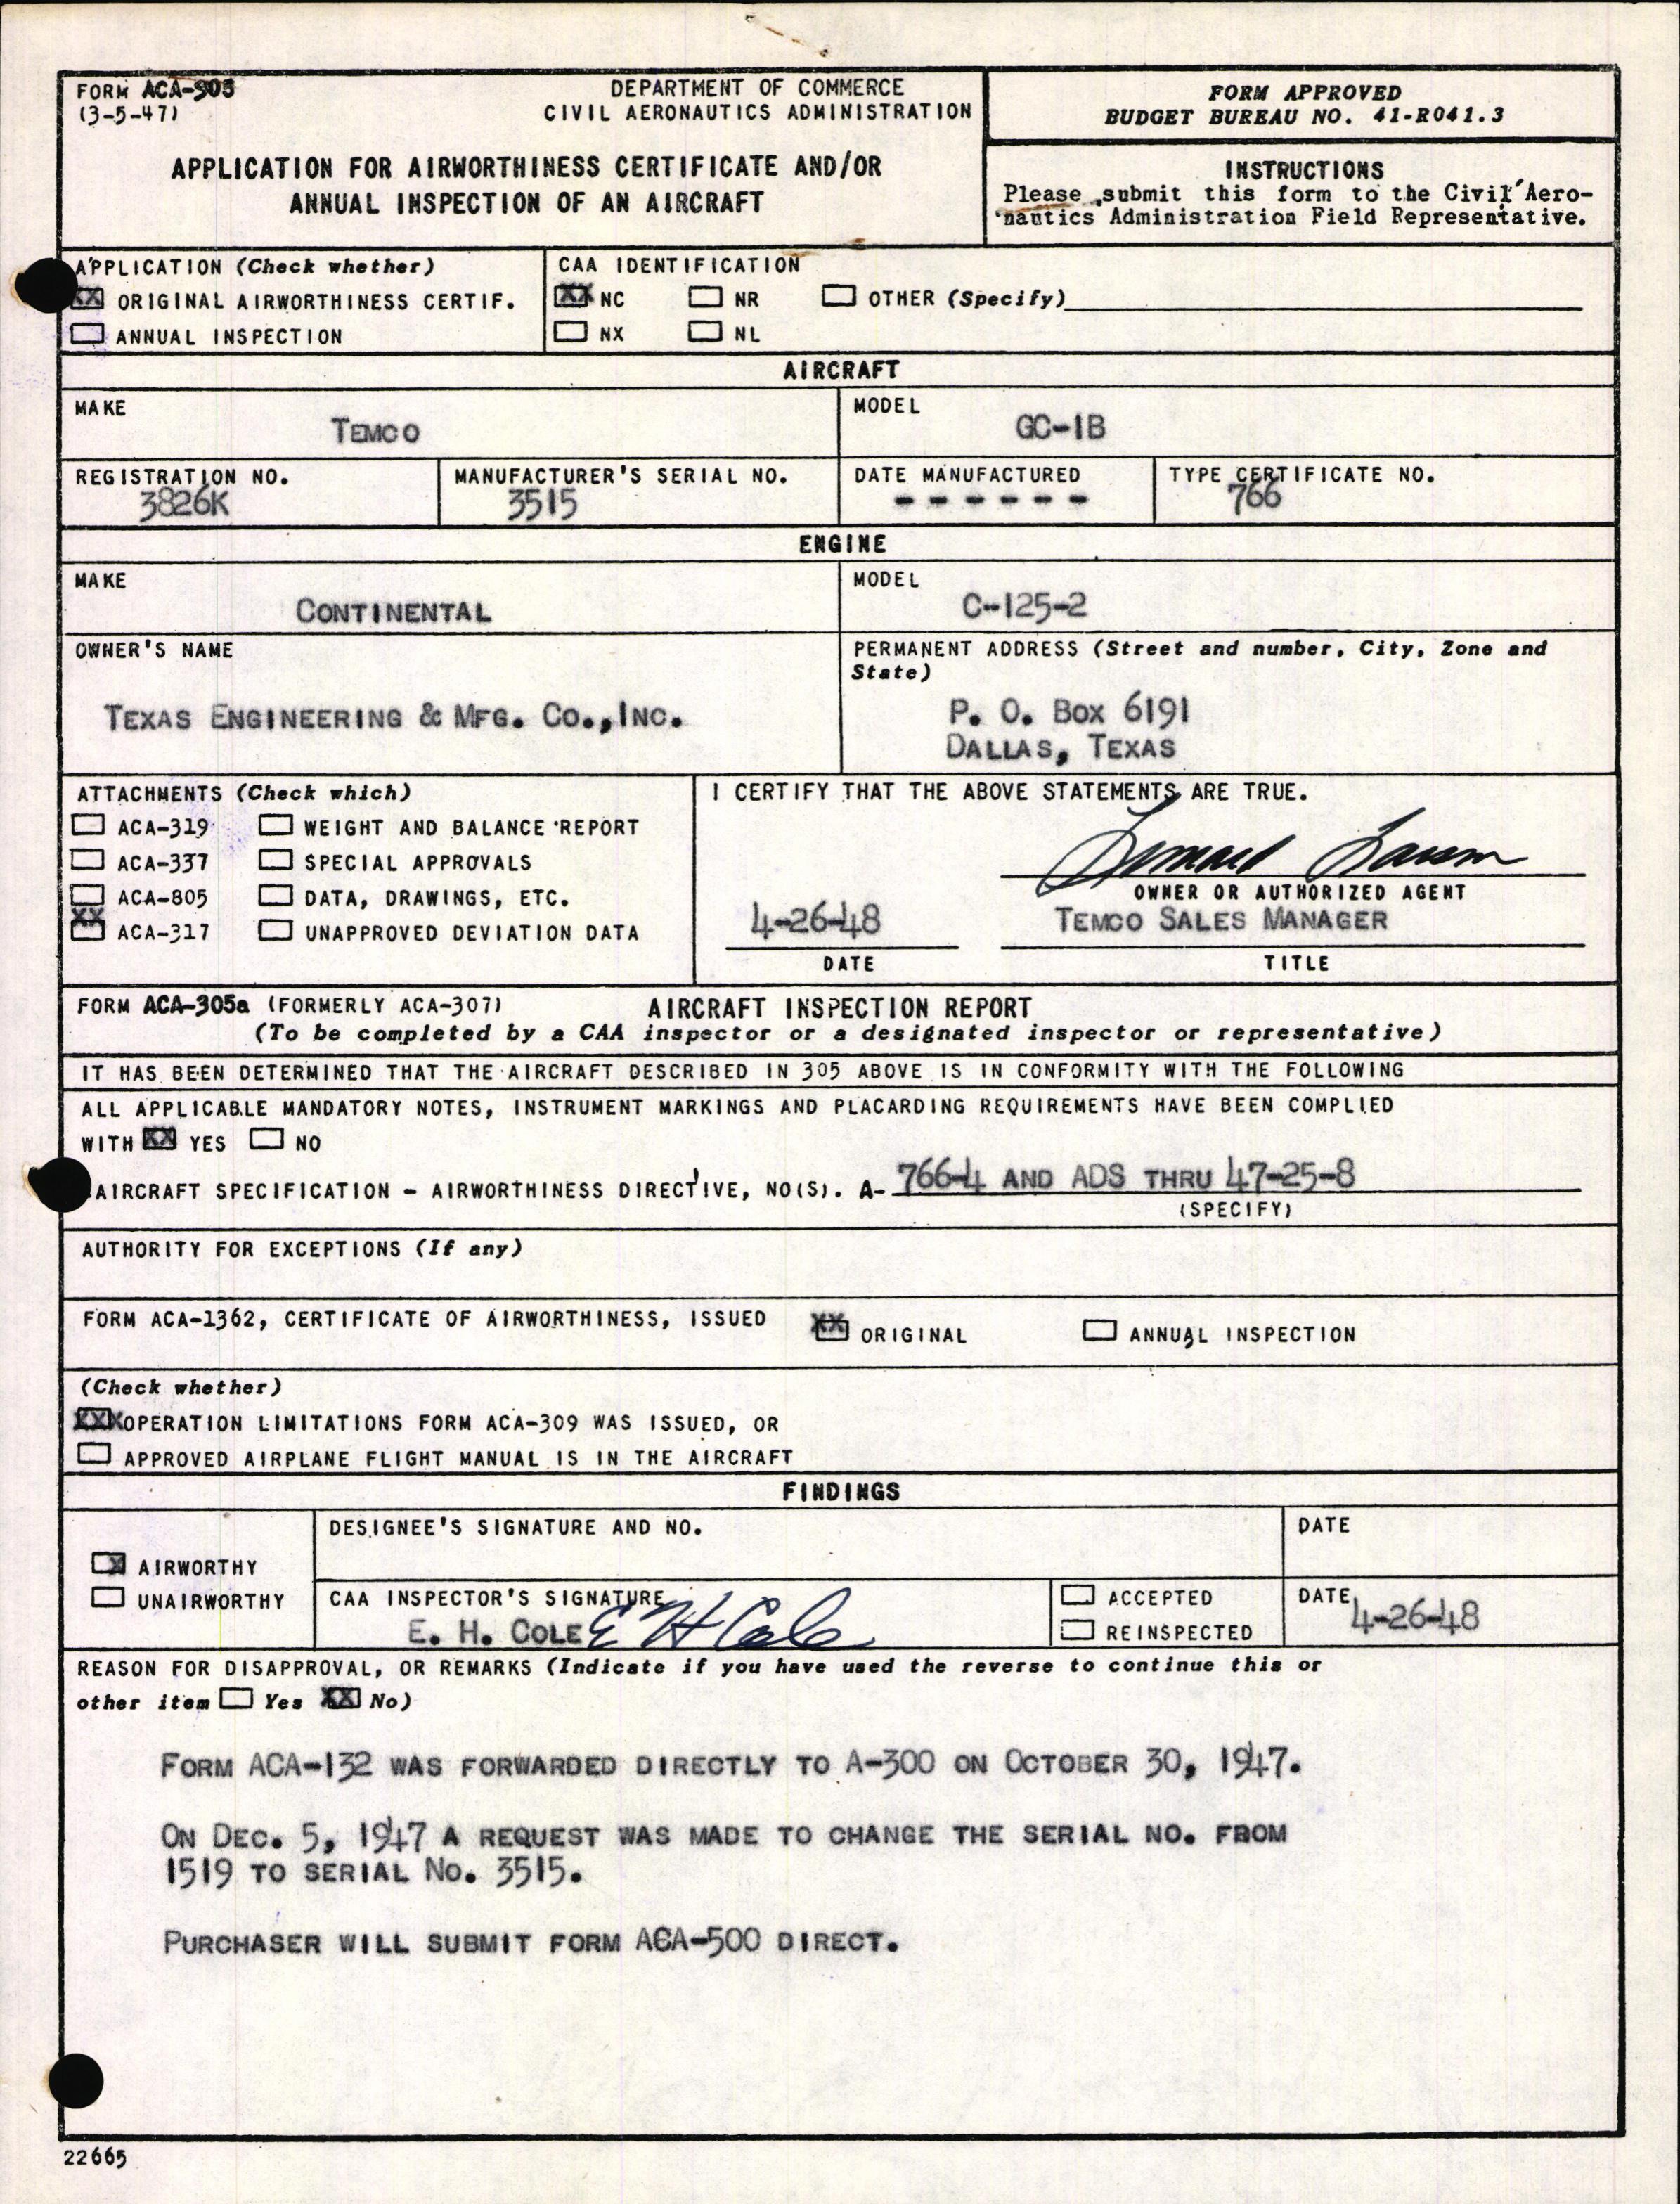 FORM ACA-305
(3-5-47)
DEPARTMENT OF COMMERCE
CIVIL AERONAUTICS ADMINISTRATION
APPLICATION FOR AIRWORTHINESS CERTIFICATE AND/OR
ANNUAL INSPECTION OF AN AIRCRAFT
FORM APPROVED
BUDGET BUREAU NO. 41-R041.3
INSTRUCTIONS
Please submit this form to the Civil Aero-
nautics Administration Field Representative.
APPLICATION (Check whether)
XX ORIGINAL AIRWORTHINESS CERTIF.
ANNUAL INSPECTION
CAA IDENTIFICATION
XX NC NR OTHER (Specify)
NX NL
AIRCRAFT
MAKE
TEMCO
MODEL
GC-1B
REGISTRATION NO.
3826K
MANUFACTURER'S SERIAL NO.
3515
DATE MANUFACTURED
- - - - - -
TYPE CERTIFICATE NO.
766
ENGINE
MAKE
CONTINENTAL
MODEL
C-125-2
OWNER'S NAME
TEXAS ENGINEERING & MFG. CO., INC.
PERMANENT ADDRESS (Street and number, City, Zone and
State)
P. O. BOX 6191
DALLAS, TEXAS
ATTACHMENTS (Check which)
ACA-319 WEIGHT AND BALANCE REPORT
ACA-337 SPECIAL APPROVALS
ACA-805 DATA, DRAWINGS, ETC.
XX ACA-317 UNAPPROVED DEVIATION DATA
I CERTIFY THAT THE ABOVE STATEMENTS ARE TRUE.
OWNER OR AUTHORIZED AGENT
4-26-48 TEMCO SALES MANAGER
DATE TITLE
FORM ACA-305a (FORMERLY ACA-307) AIRCRAFT INSPECTION REPORT
(To be completed by a CAA inspector or a designated inspector or representative)
IT HAS BEEN DETERMINED THAT THE AIRCRAFT DESCRIBED IN 305 ABOVE IS IN CONFORMITY WITH THE FOLLOWING
ALL APPLICABLE MANDATORY NOTES, INSTRUMENT MARKINGS AND PLACARDING REQUIREMENTS HAVE BEEN COMPLIED
WITH XX YES NO
AIRCRAFT SPECIFICATION - AIRWORTHINESS DIRECTIVE, NO(S). A- 766-4 AND ADS THRU 47-25-8
(SPECIFY)
AUTHORITY FOR EXCEPTIONS (If any)
FORM ACA-1362, CERTIFICATE OF AIRWORTHINESS, ISSUED XX ORIGINAL ANNUAL INSPECTION
(Check whether)
XXX OPERATION LIMITATIONS FORM ACA-309 WAS ISSUED, OR
APPROVED AIRPLANE FLIGHT MANUAL IS IN THE AIRCRAFT
FINDINGS
X AIRWORTHY
UNAIRWORTHY
DESIGNEE'S SIGNATURE AND NO.
DATE
CAA INSPECTOR'S SIGNATURE
E. H. COLE E H Cole
ACCEPTED
REINSPECTED
DATE
4-26-48
REASON FOR DISAPPROVAL, OR REMARKS (Indicate if you have used the reverse to continue this or
other item Yes XX No)
FORM ACA-132 WAS FORWARDED DIRECTLY TO A-300 ON OCTOBER 30, 1947.
ON DEC. 5, 1947 A REQUEST WAS MADE TO CHANGE THE SERIAL NO. FROM
1519 TO SERIAL NO. 3515.
PURCHASER WILL SUBMIT FORM ACA-500 DIRECT.
22665